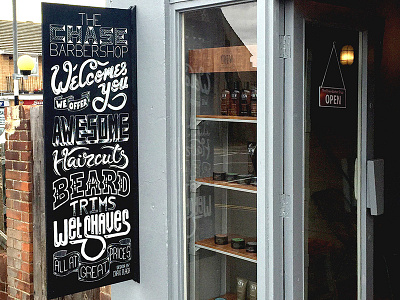 THE
CHASE
BARBERSHOP
Welcomes
you
WE OFFER
AWESOME
Haircuts
BEARD
TRIMS
Wet Shaves
ALL AT
GREAT
PRICES
DESIGN BY
OPEN